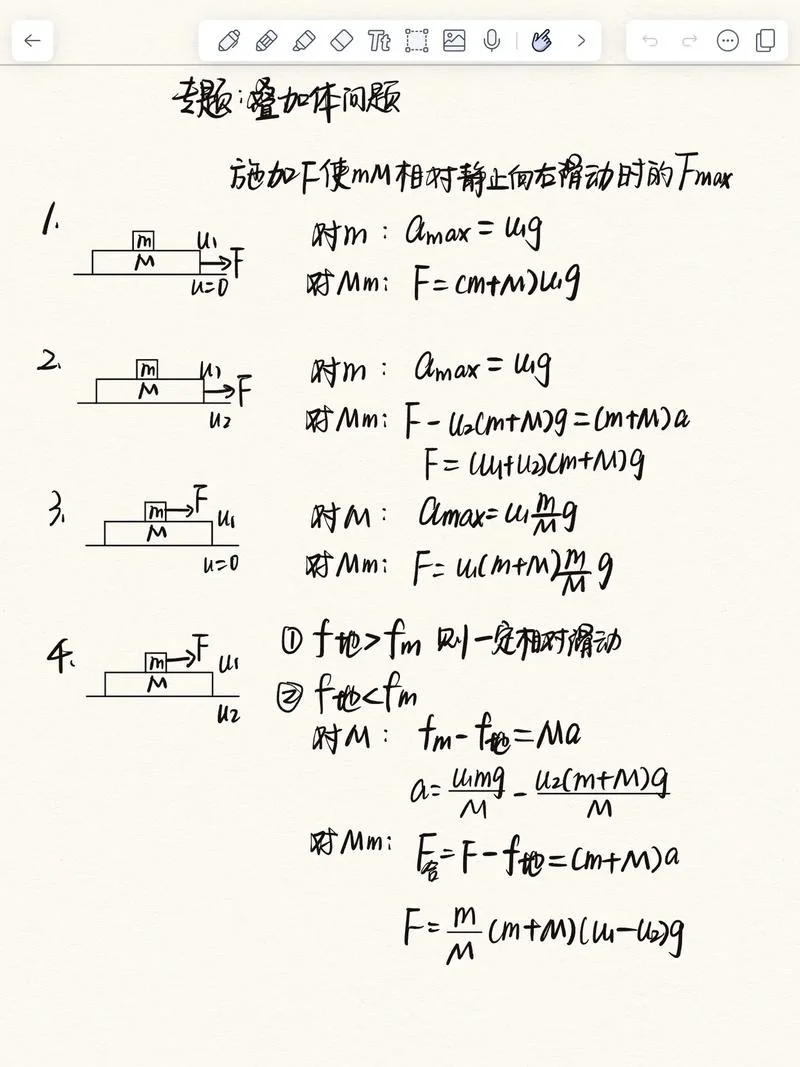 Tt
专题:叠加体问题
施加F使mM相对静止向右滑动时的Fmax
1.
m
M
u1
F
u=0
对m: amax=u1g
对Mm: F=(m+M)u1g
2.
m
M
u1
F
u2
对m: amax=u1g
对Mm: F-u2(m+M)g=(m+M)a
F=(u1+u2)(m+M)g
3.
m
F
M
u1
u=0
对M: amax=u1 m/M g
对Mm: F=u1(m+M) m/M g
4.
m
F
M
u1
u2
① f地>fm 则一定相对滑动
② f地<fm
对M: fm-f地=Ma
a= u1mg/M - u2(m+M)g/M
对Mm: F合=F-f地=(m+M)a
F= m/M (m+M)(u1-u2)g